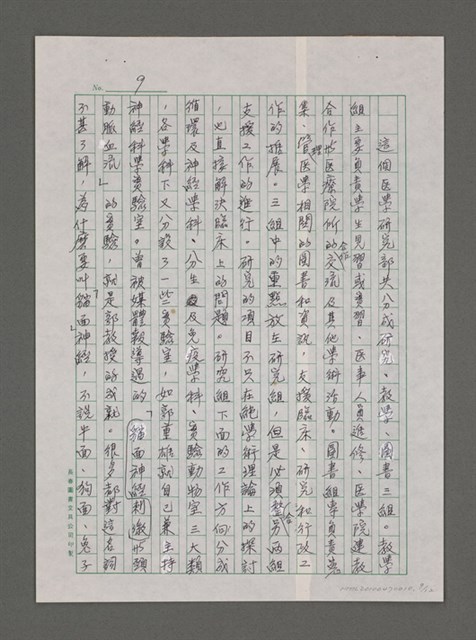 No. 9
這個医學研究部共分成研究、教學、圖書三組。教學
組主要負責學生見習或實習、医事人員進修、医學院建教
合作的医療院所的合作交流及其他學術活動。圖書組專負責蒐
集、管理医學相關的圖書和資訊，支援臨床、研究和行政工
作的推展。三組中的重點放在研究組，但是必須整合另兩組
支援工作的進行。研究的項目不只在純學術理論上的探討
，也直接解決臨床上的問題。研究組下面的工作方向分成
循環及神經學科、分生及免疫學科、實驗動物室三大類
，各學科下又分設了一些實驗室，如郭重雄就自己兼主持
神經科學實驗室。曾被媒體報導過的「貓面神經刺激形頸
動脈血流」的實驗，就是郭教授的成就。很多都對這名詞
不甚了解，為什麼要叫「貓面神經」，不說牛面、狗面、兔子